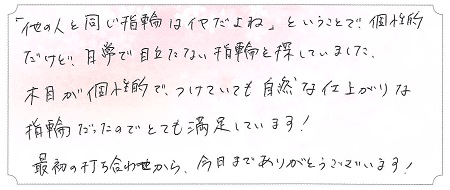 「他の人と同じ指輪はイヤだよね」ということで、個性的
だけど、日常で目立たない指輪を探していました。
木目が個性的で、つけていても自然な仕上がりな
指輪だったのでとても満足しています!
最初の打ち合わせから、今日までありがとうございます!